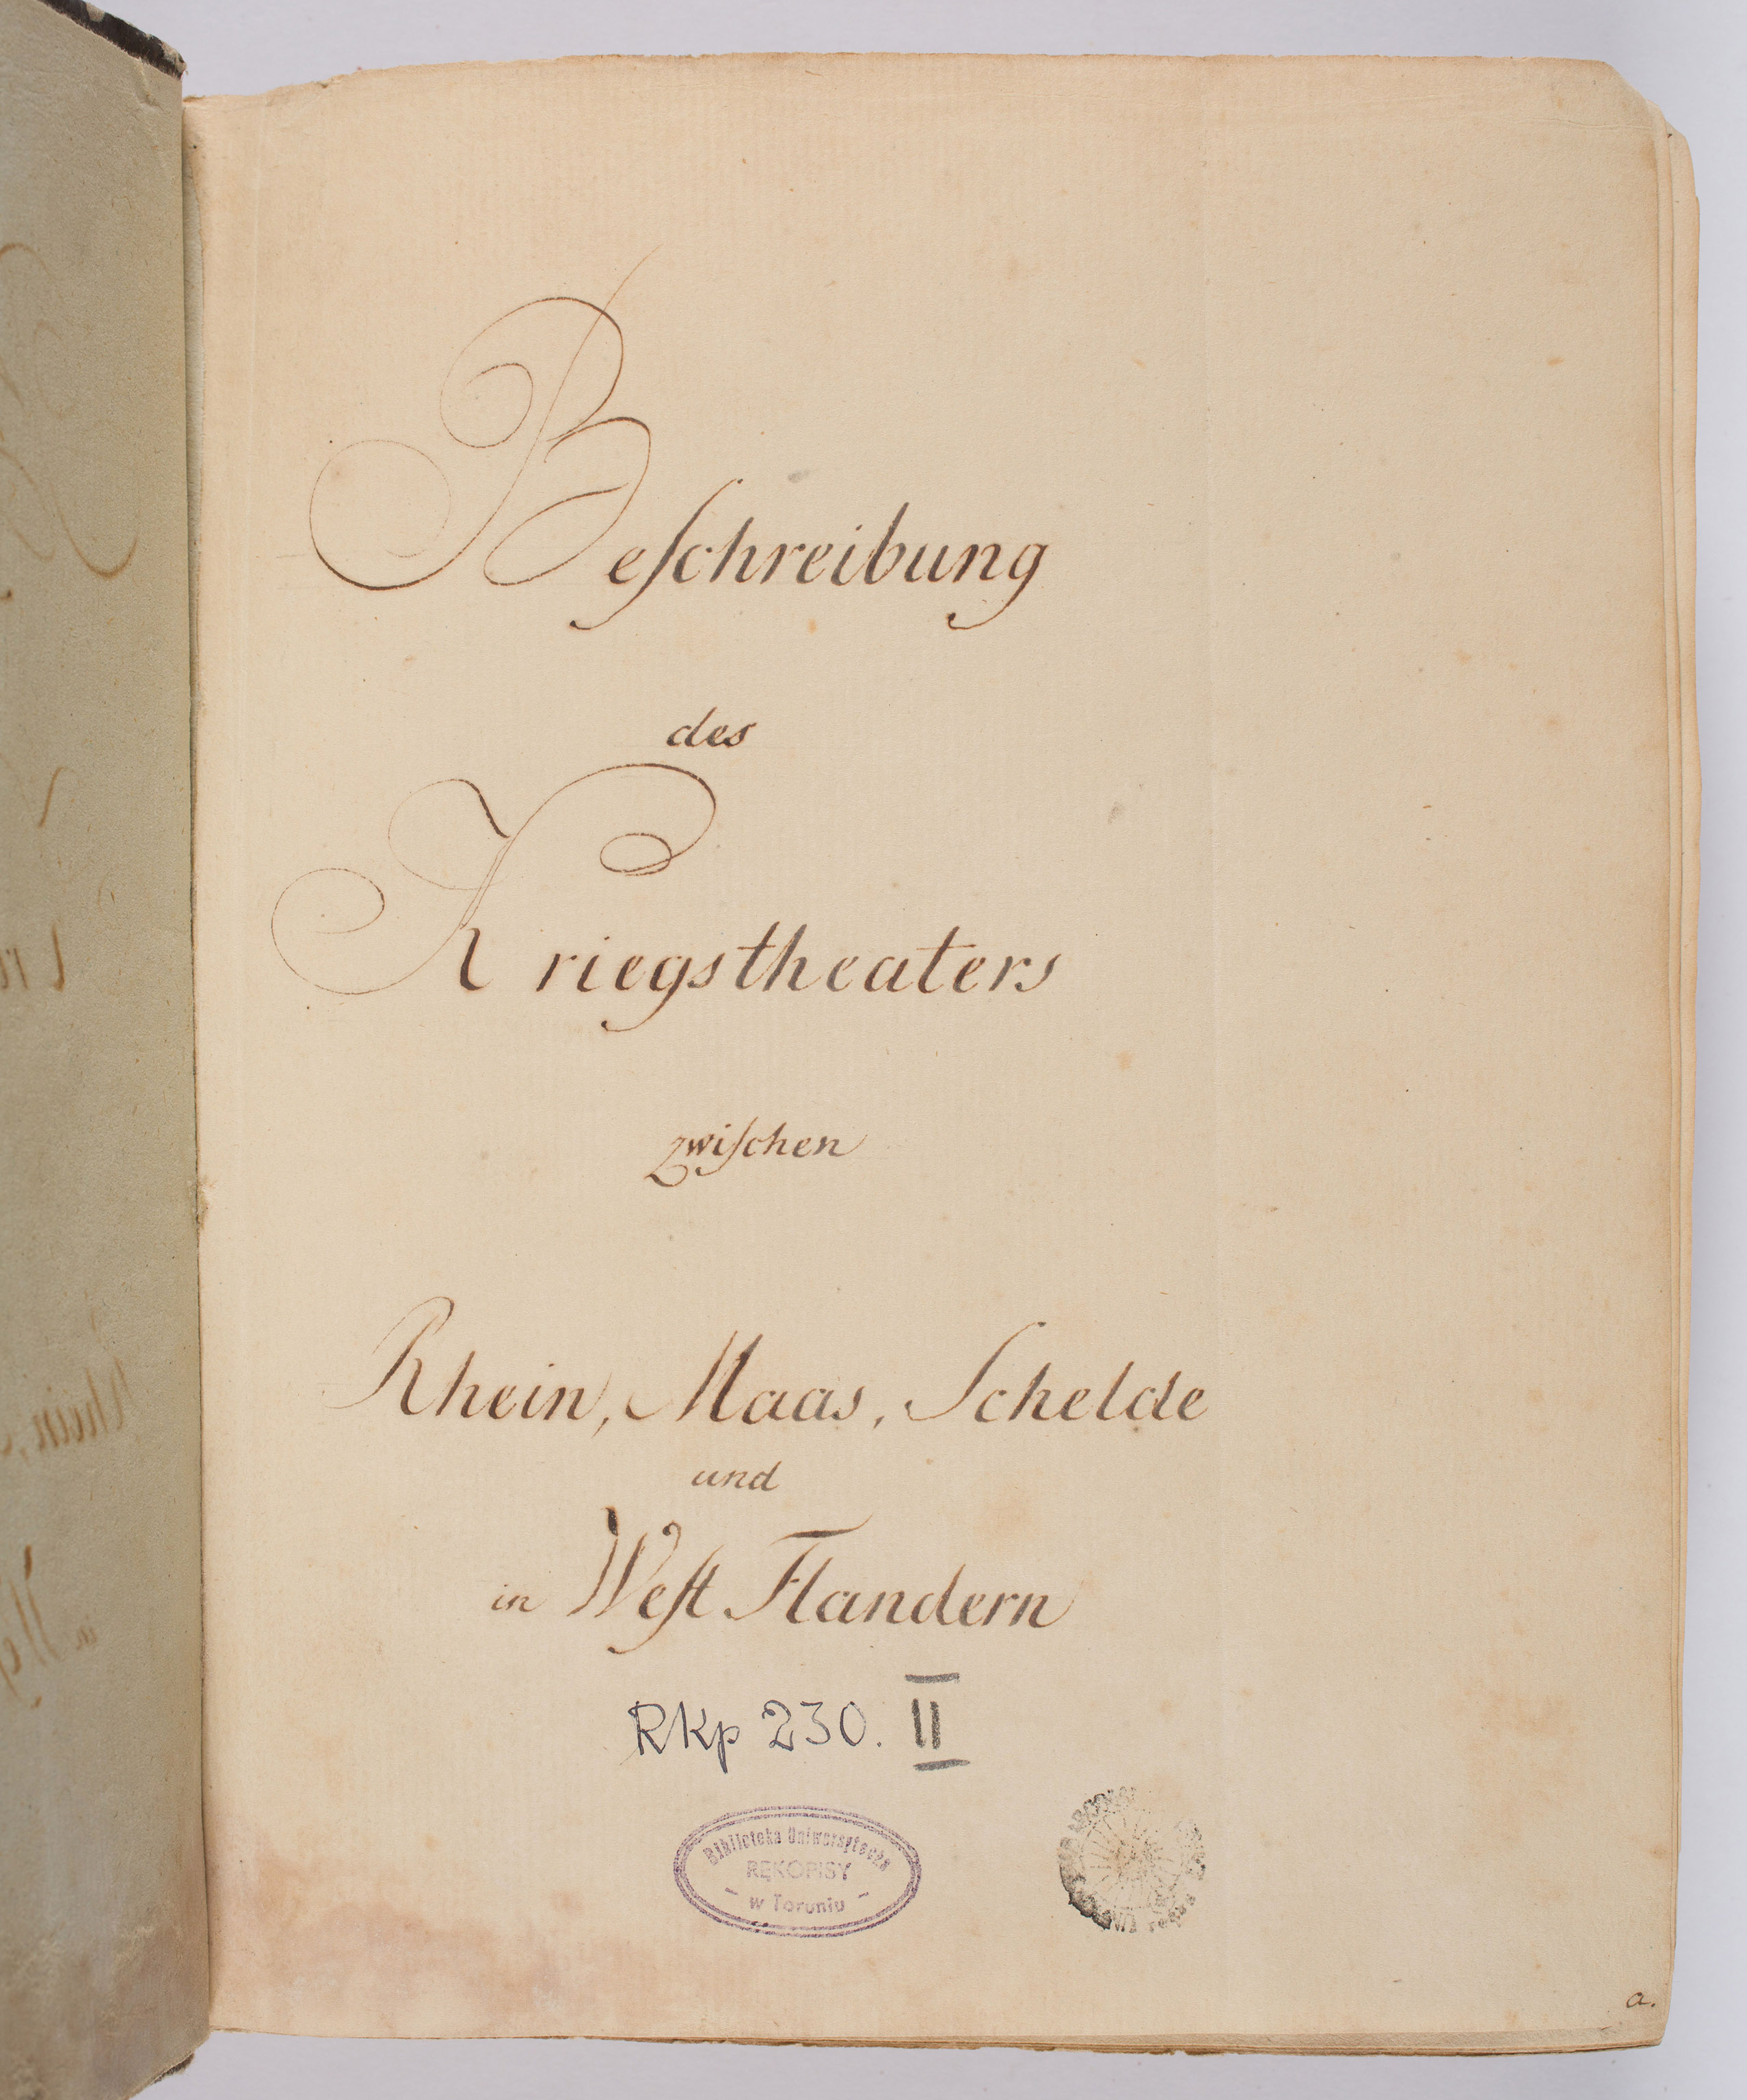 Beſchreibung
des
Kriegstheaters
zwiſchen
Rhein, Maas, Schelde
und
in Weſt Flandern
Rkp 230. II
Biblioteka Uniwersytecka
RĘKOPISY
- w Toruniu -
a.